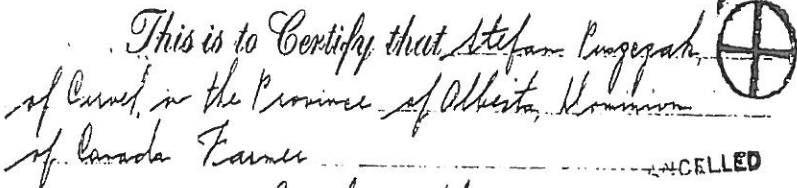 This is to Certify that Stefan
of Carvel, in the Province of Alberta, Dominion
of Canada Farmer NCELLED